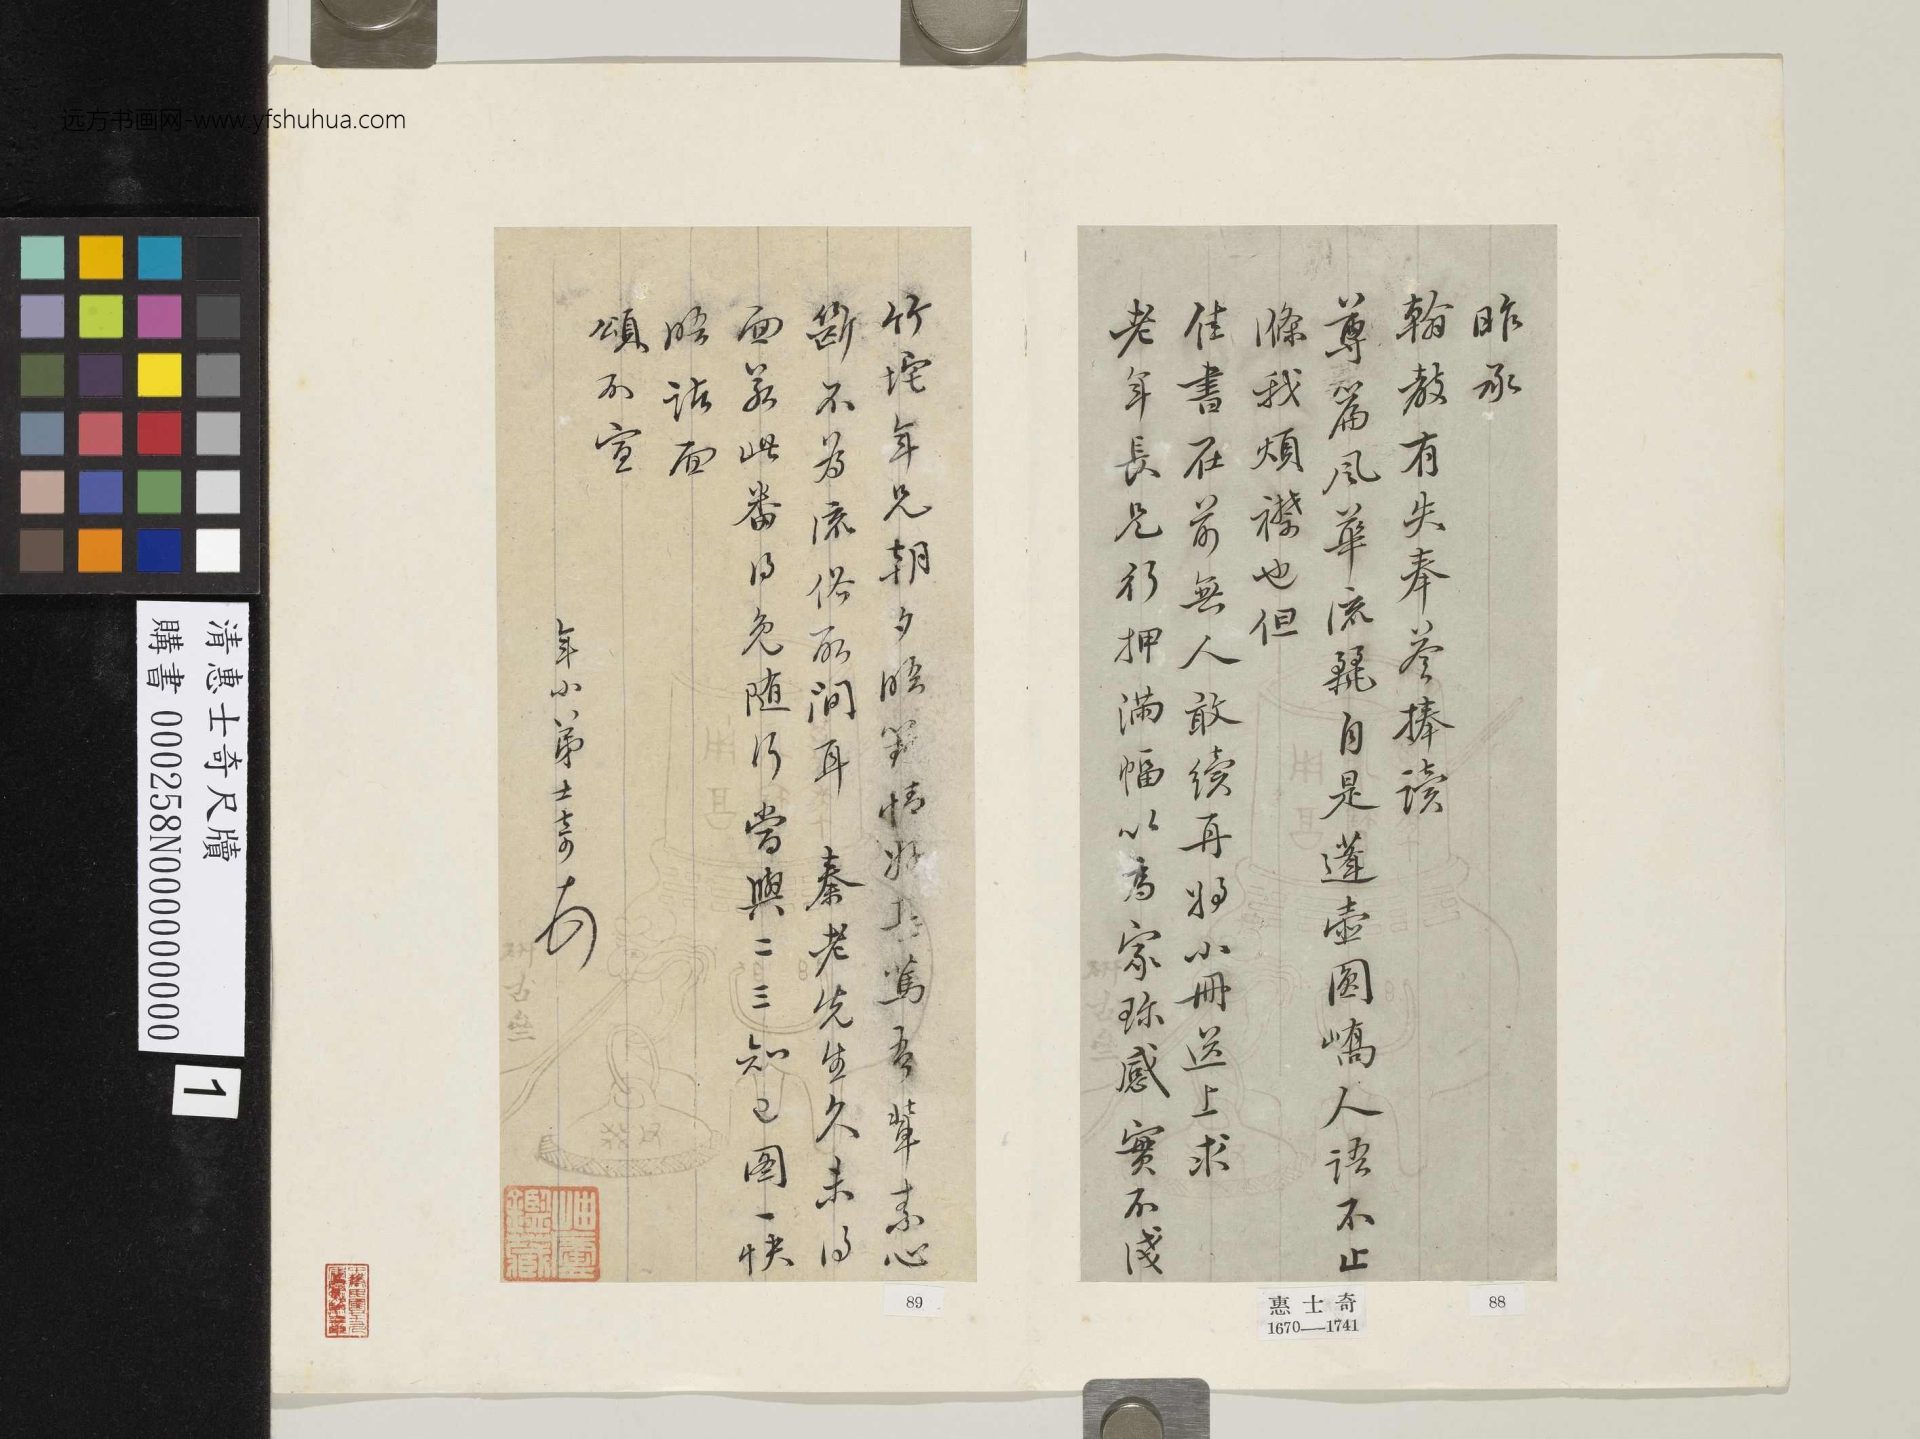 远方书画网-www.yfshuhua.com
昨承
翰教有失奉答捧读
尊篇风华流丽自是蓬壶圆峤人语不止
涤我烦襟也但
佳書在前無人敢续再將小冊送上求
老年長兄行押满幅以为家珍感實不浅
竹垞年兄朝夕晤對情好 篤吾輩素心
斷不为流俗所间耳 秦老先生久未得
面若此番得免随行當與二三知己图一快
晤諸面
頌不宣
年小弟士奇
惠士奇
1670—1741
88
89
清惠士奇尺牘
購書 000258N000000000
1